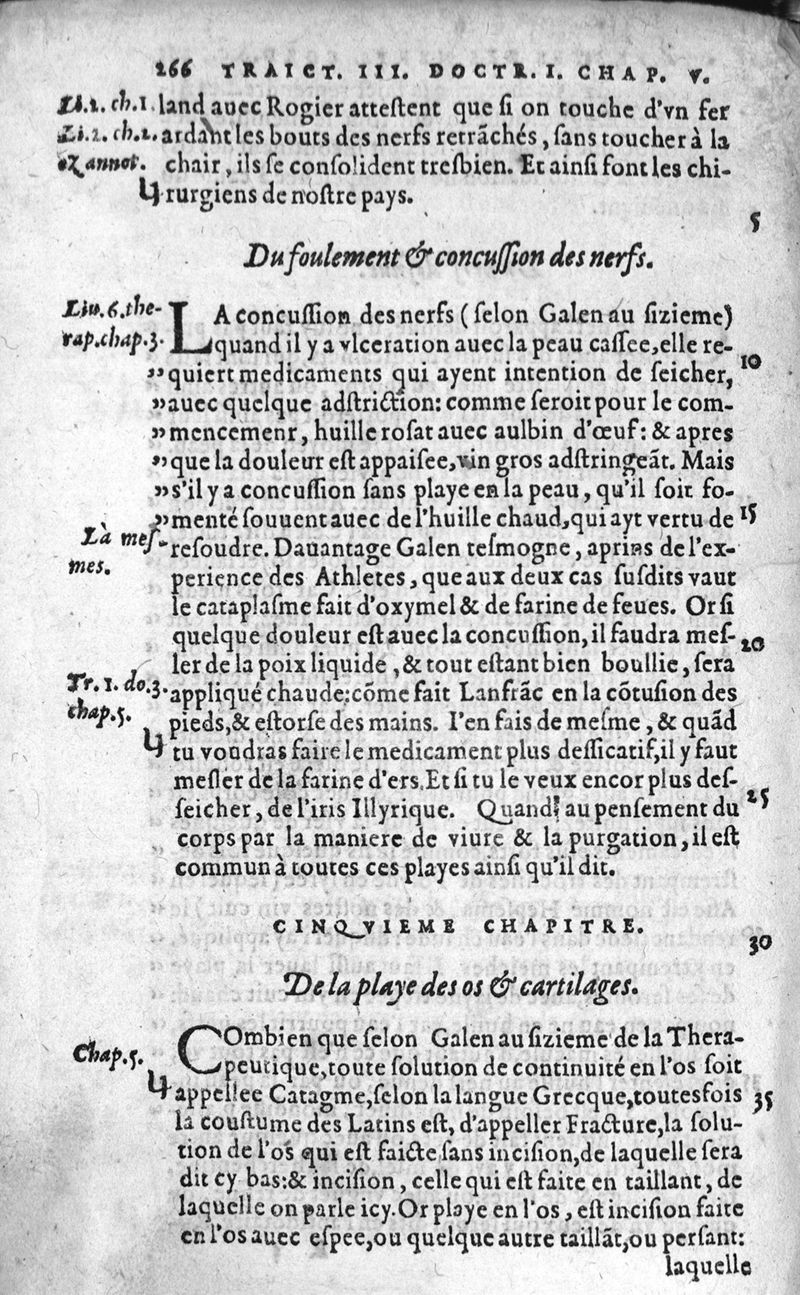 266 TRAICT. III. DOCTR. I. CHAP. V.
Li.1. ch.1. land auec Rogier attestent que si on touche d'vn fer
Li.2. ch.1. ardant les bouts des nerfs retrãchés, sans toucher à la
annot. chair, ils se consolident tresbien. Et ainsi font les chi-
rurgiens de nostre pays.
5
Du foulement & concussion des nerfs.
Liu. 6. the- LA concussion des nerfs (selon Galen au sizieme)
rap. chap. 3. quand il y a vlceration auec la peau cassee, elle re-
10
" quiert medicaments qui ayent intention de seicher,
" auec quelque adstriction: comme seroit pour le com-
" mencemenr, huille rosat auec aulbin d'œuf: & apres
" que la douleur est appaisee, vin gros adstringeãt. Mais
" s'il y a concussion sans playe en la peau, qu'il soit fo-
" menté souuent auec de l'huille chaud, qui ayt vertu de 15
Là mes- resoudre. Dauantage Galen tesmogne, aprins de l'ex-
mes. perience des Athletes, que aux deux cas susdits vaut
le cataplasme fait d'oxymel & de farine de feues. Or si
quelque douleur est auec la concussion, il faudra mes- 20
ler de la poix liquide, & tout estant bien boullie, sera
Tr. 1. do. 3. appliqué chaude: cõme fait Lanfrãc en la cõtusion des
chap. 5. pieds, & estorse des mains. I'en fais de mesme, & quãd
tu voudras faire le medicament plus dessicatif, il y faut
mesler de la farine d'ers. Et si tu le veux encor plus des-
seicher, de l'iris Illyrique. Quand au pensement du 25
corps par la maniere de viure & la purgation, il est
commun à toutes ces playes ainsi qu'il dit.
CINQVIEME CHAPITRE.
30
De la playe des os & cartilages.
Chap. 5. COmbien que selon Galen au sizieme de la Thera-
peutique, toute solution de continuité en l'os soit
appellee Catagme, selon la langue Grecque, toutesfois 35
la coustume des Latins est, d'appeller Fracture, la solu-
tion de l'os qui est faicte sans incision, de laquelle sera
dit cy bas: & incision, celle qui est faite en taillant, de
laquelle on parle icy. Or playe en l'os, est incision faite
en l'os auec espee, ou quelque autre taillãt, ou persant:
laquelle